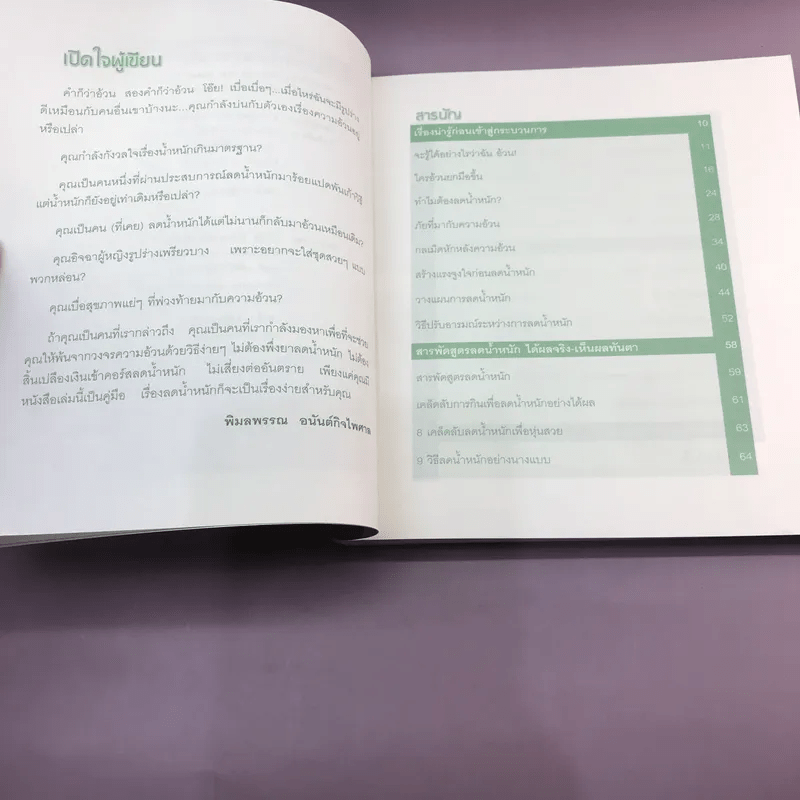 เปิดใจผู้เขียน
คำก็ว่าอ้วน สองคำก็ว่าอ้วน โอ๊ย! เบื่อเบื่อๆ...เมื่อไหร่ฉันจะมีรูปร่าง
ดีเหมือนกับคนอื่นเขาบ้างนะ...คุณกำลังบ่นกับตัวเองเรื่องความอ้วนอยู่
หรือเปล่า
คุณกำลังกังวลใจเรื่องน้ำหนักเกินมาตรฐาน?
คุณเป็นคนหนึ่งที่ผ่านประสบการณ์ลดน้ำหนักมาร้อยแปดพันเก้าวิธี
แต่น้ำหนักก็ยังอยู่เท่าเดิมหรือเปล่า?
คุณเป็นคน (ที่เคย) ลดน้ำหนักได้แต่ไม่นานก็กลับมาอ้วนเหมือนเดิม?
คุณอิจฉาผู้หญิงรูปร่างเพรียวบาง เพราะอยากจะใส่ชุดสวยๆ แบบ
พวกหล่อน?
คุณเบื่อสุขภาพแย่ๆ ที่พ่วงท้ายมากับความอ้วน?
ถ้าคุณเป็นคนที่เรากล่าวถึง คุณเป็นคนที่เรากำลังมองหาเพื่อที่จะช่วย
คุณให้พ้นจากวงจรความอ้วนด้วยวิธีง่ายๆ ไม่ต้องพึ่งยาลดน้ำหนัก ไม่ต้อง
สิ้นเปลืองเงินเข้าคอร์สลดน้ำหนัก ไม่เสี่ยงต่ออันตราย เพียงแค่คุณมี
หนังสือเล่มนี้เป็นคู่มือ เรื่องลดน้ำหนักก็จะเป็นเรื่องง่ายสำหรับคุณ
พิมลพรรณ อนันต์กิจไพศาล
สารบัญ
เรื่องน่ารู้ก่อนเข้าสู่กระบวนการ 10
จะรู้ได้อย่างไรว่าฉัน อ้วน! 11
ใครอ้วนยกมือขึ้น 16
ทำไมต้องลดน้ำหนัก? 24
ภัยที่มากับความอ้วน 28
กลเม็ดหักหลังความอ้วน 34
สร้างแรงจูงใจก่อนลดน้ำหนัก 40
วางแผนการลดน้ำหนัก 44
วิธีปรับอารมณ์ระหว่างการลดน้ำหนัก 52
สารพัดสูตรลดน้ำหนัก ได้ผลจริง-เห็นผลทันตา 58
สารพัดสูตรลดน้ำหนัก 59
เคล็ดลับการกินเพื่อลดน้ำหนักอย่างได้ผล 61
8 เคล็ดลับลดน้ำหนักเพื่อหุ่นสวย 63
9 วิธีลดน้ำหนักอย่างนางแบบ 64